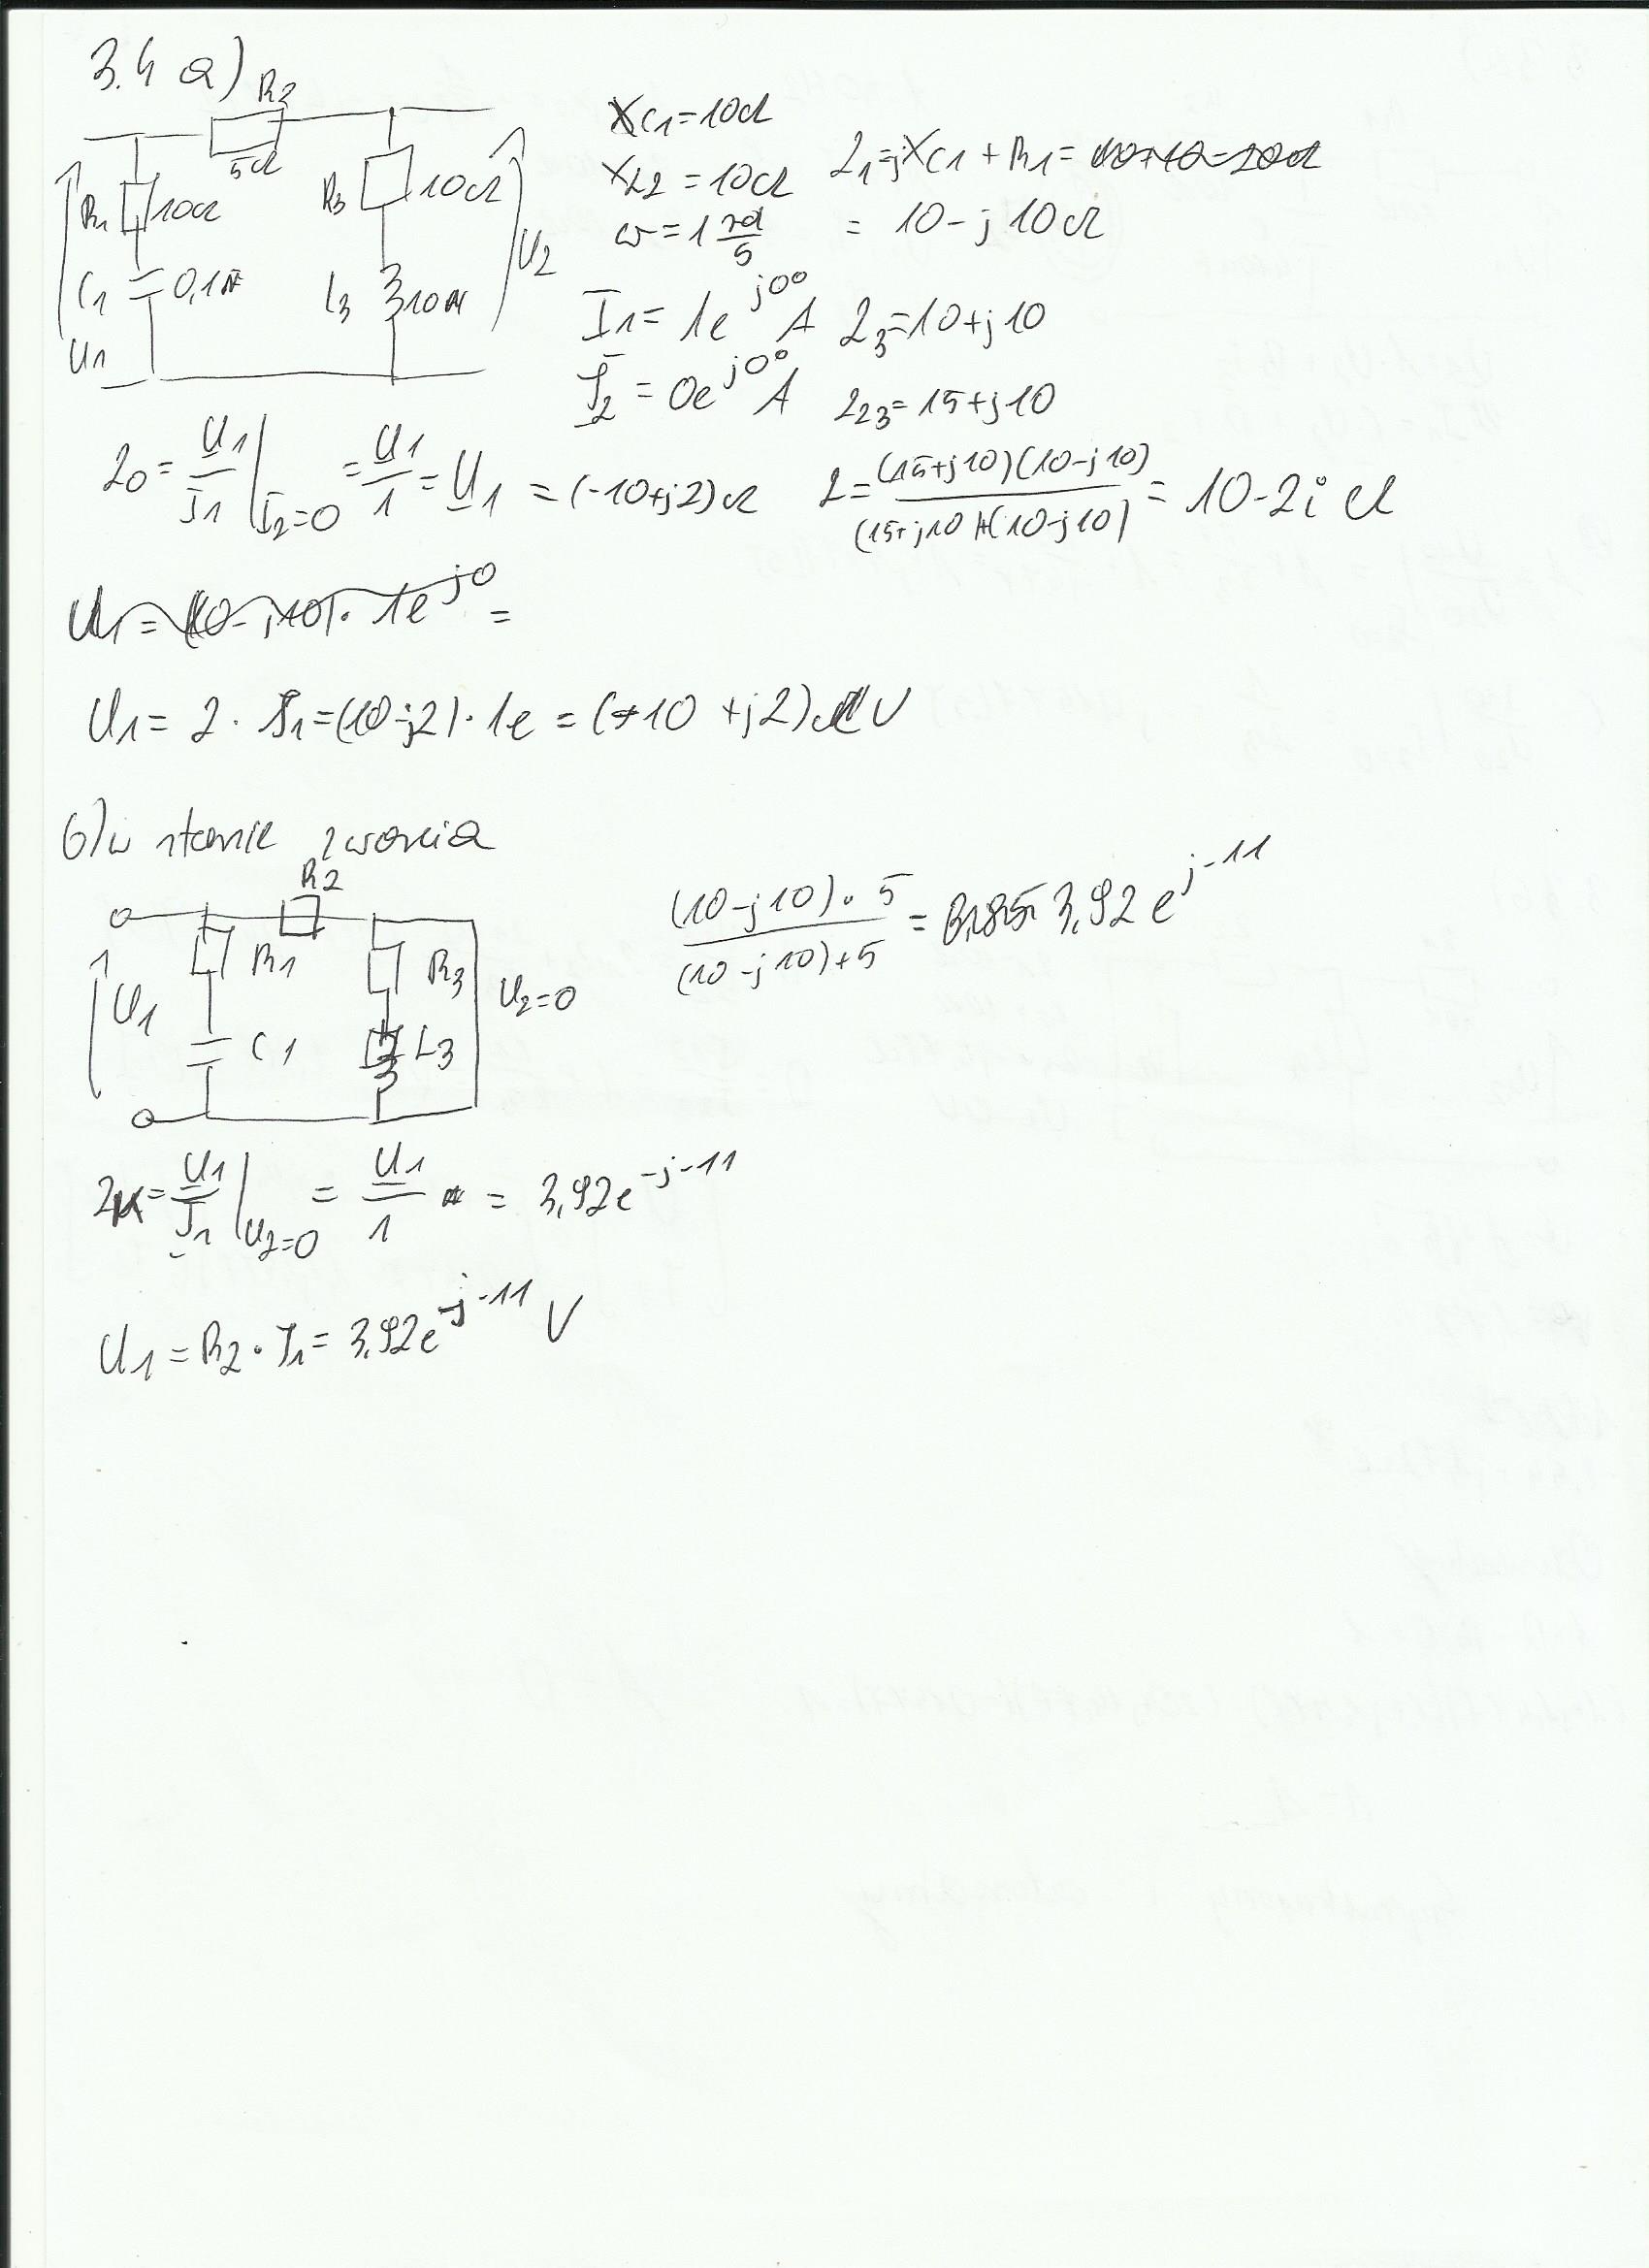 3.4 a)
R2
5Ω
R1 10Ω
R3 10Ω
C1 0,1F
L3 10H
U1
U2
XC1=10Ω
XL2=10Ω
ω=1 rd/s
Z1=jXC1+R1=10+10=20Ω
= 10-j10Ω
I1= 1e^j0° A Z3=10+j10
I2=0e^j0° A Z23=15+j10
Z0=U1/I1|I2=0 =U1/1=U1=(-10+j2)Ω Z=(15+j10)(10-j10)/(15+j10)+(10-j10)=10-2i Ω
U1=(10-j10)·1e^j0=
U1=Z·I1=(10-j2)·1e=(-10+j2)V
b) w stanie zwarcia
R2
R1
R3
C1
L3
U1
U2=0
(10-j10)·5/(10-j10)+5= 3,92e^j-11
Zk=U1/I1|U2=0 =U1/1 = 3,92e^-j-11
U1=R2·I1=3,92e^-j-11 V